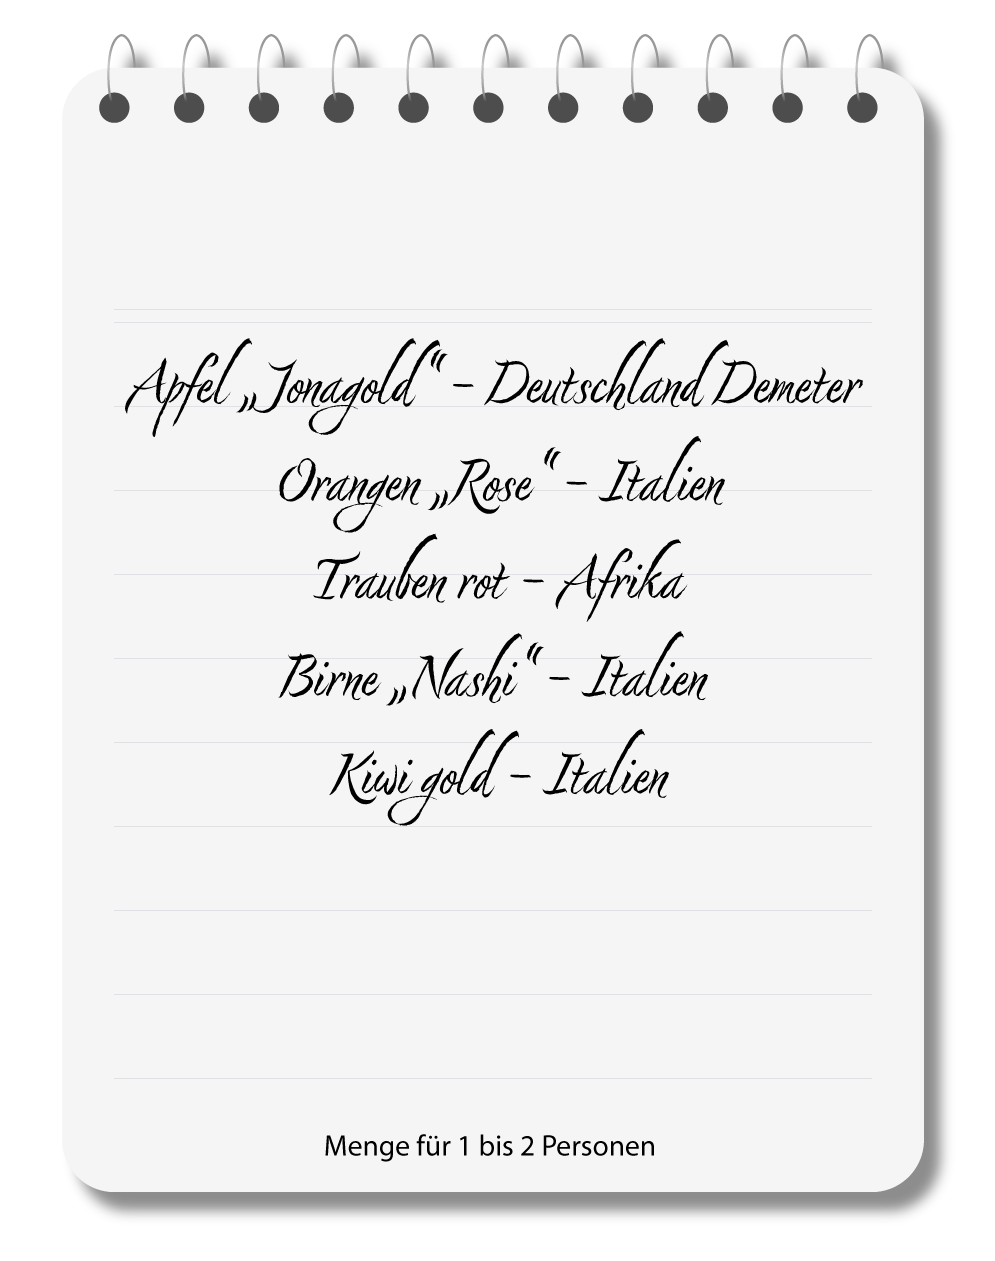 Apfel „Jonagold“ – Deutschland Demeter
Orangen „Rose“ – Italien
Trauben rot – Afrika
Birne „Nashi“ – Italien
Kiwi gold – Italien
Menge für 1 bis 2 Personen